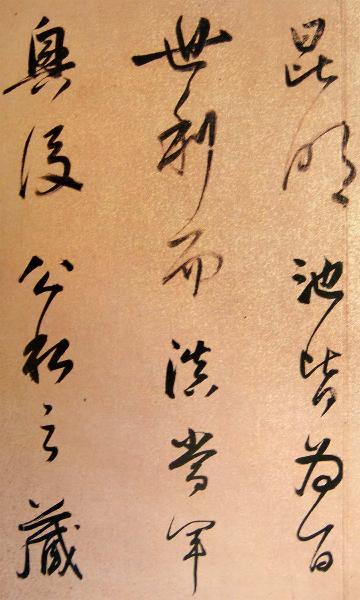 昆明池皆為百
世利而滇當軍
興後公私之藏